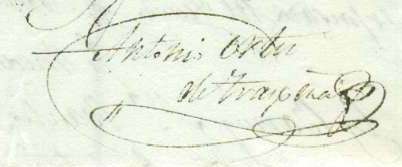 Antonio Ortiz
de Trapeña